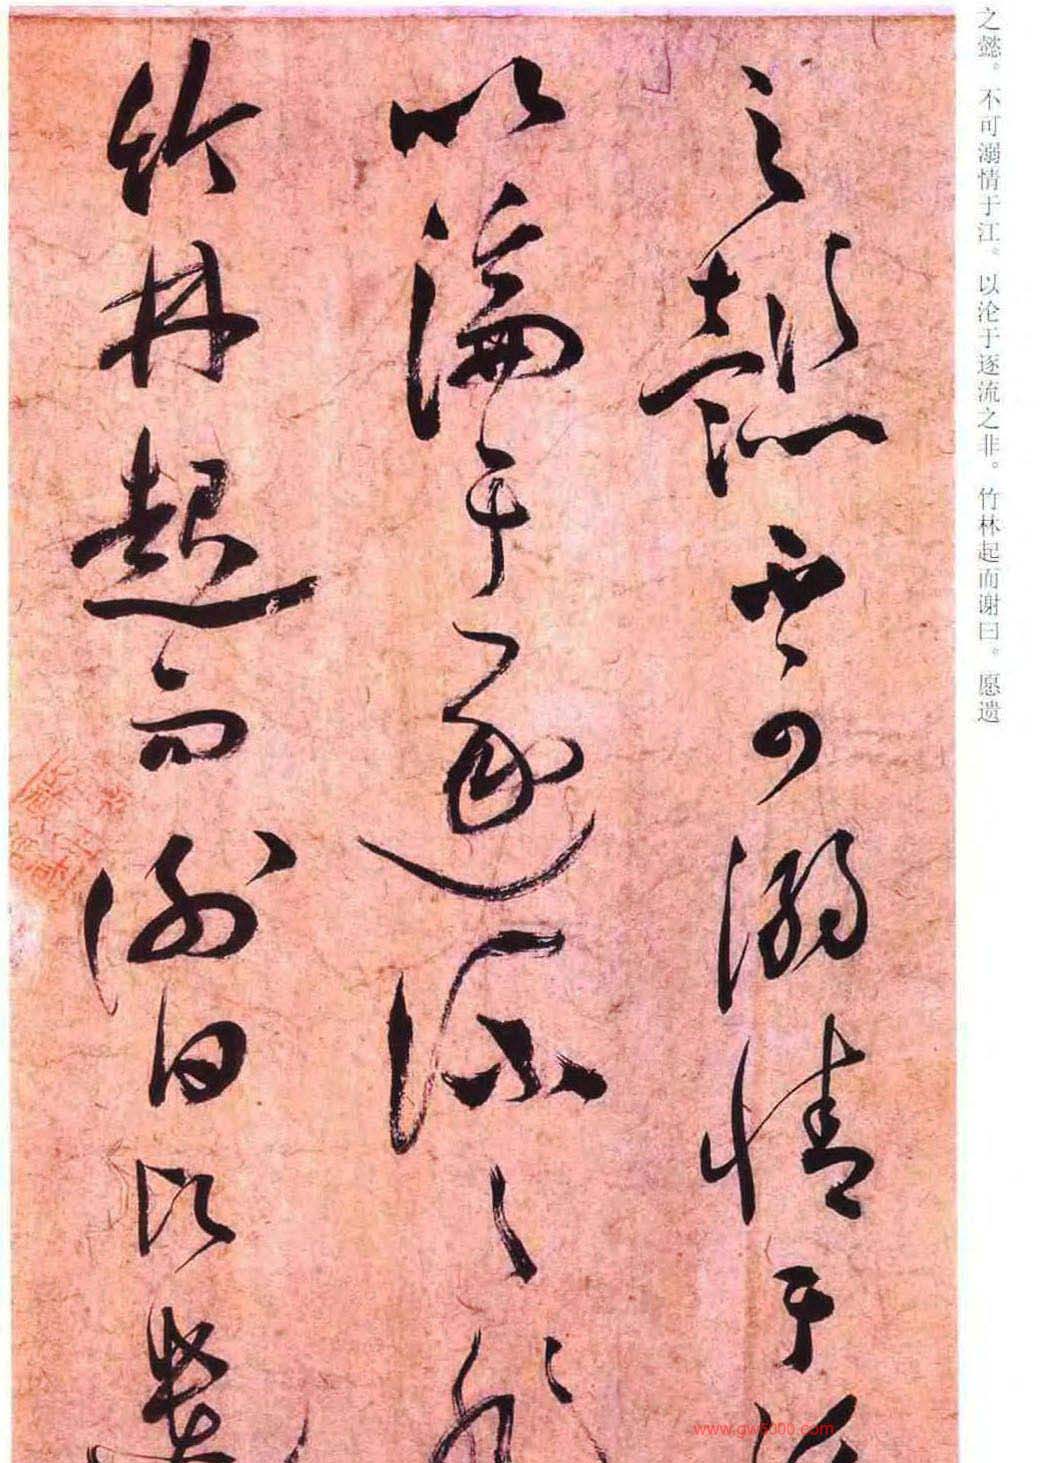 之懿。不可溺情于江。以沦于逐流之非。竹林起而谢曰。愿遗
之懿不可溺情于江
以淪于逐流之非
竹林起而谢曰
www.gw5000.com